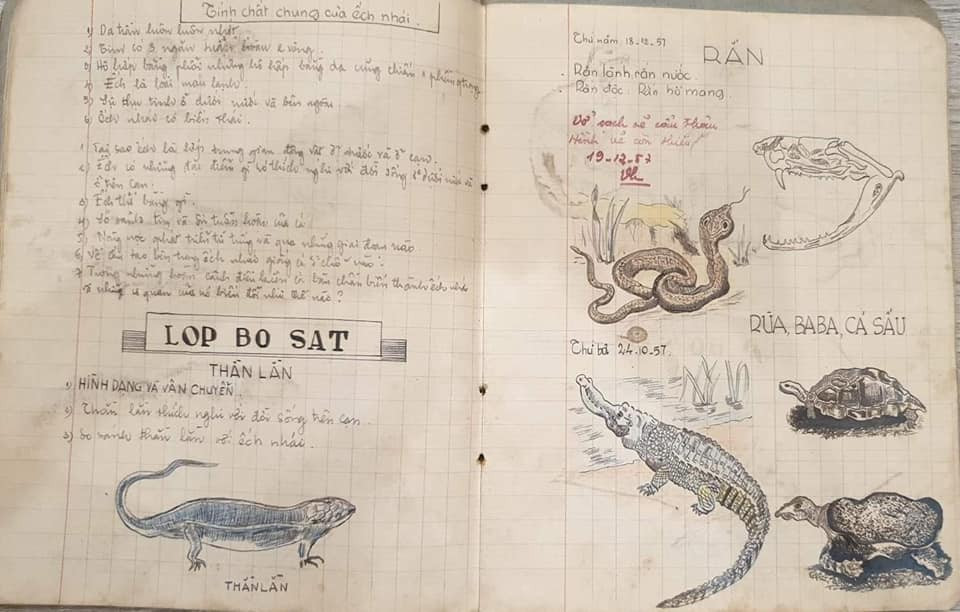 Tính chất chung của ếch nhái.
1) Da trần luôn luôn nhớt.
2) Tim có 3 ngăn tuần hoàn
3) Hô hấp bằng phổi nhưng hô hấp bằng da cũng chiếm 1 phần
4) Ếch là loài máu lạnh.
5) Sự thụ tinh ở dưới nước và bên ngoài
6) Ếch nhái có biến thái.
1 Tại sao ếch là lớp trung gian động vật ở nước và ở cạn.
2) Ếch có những đặc điểm gì để thích nghi với đời sống ở dưới nước và
ở trên cạn.
3) Ếch thở bằng gì.
4) So sánh tim và bộ tuần hoàn của cá
5) Nòng nọc phát triển từ trứng và qua những giai đoạn nào.
6) Về cấu tạo bên trong ếch nhái giống cá ở chỗ nào?
7 Trong những hoàn cảnh điều kiện gì biến thành ếch nhái
những cơ quan của nó biến đổi như thế nào?
LOP BO SAT
THẰN LẰN
1) HÌNH DẠNG VÀ VẬN CHUYỂN
2) Thằn lằn thích nghi với đời sống trên cạn.
3) So sánh thằn lằn với ếch nhái.
THẰN LẰN
Thứ năm 18-12-57
RẮN
Rắn lành rắn nước.
Rắn độc. Rắn hổ mang.
Vở sạch sẽ
Hình vẽ còn thiếu
19-12-57
RÙA, BABA, CÁ SẤU
Thứ ba 24.10.57.